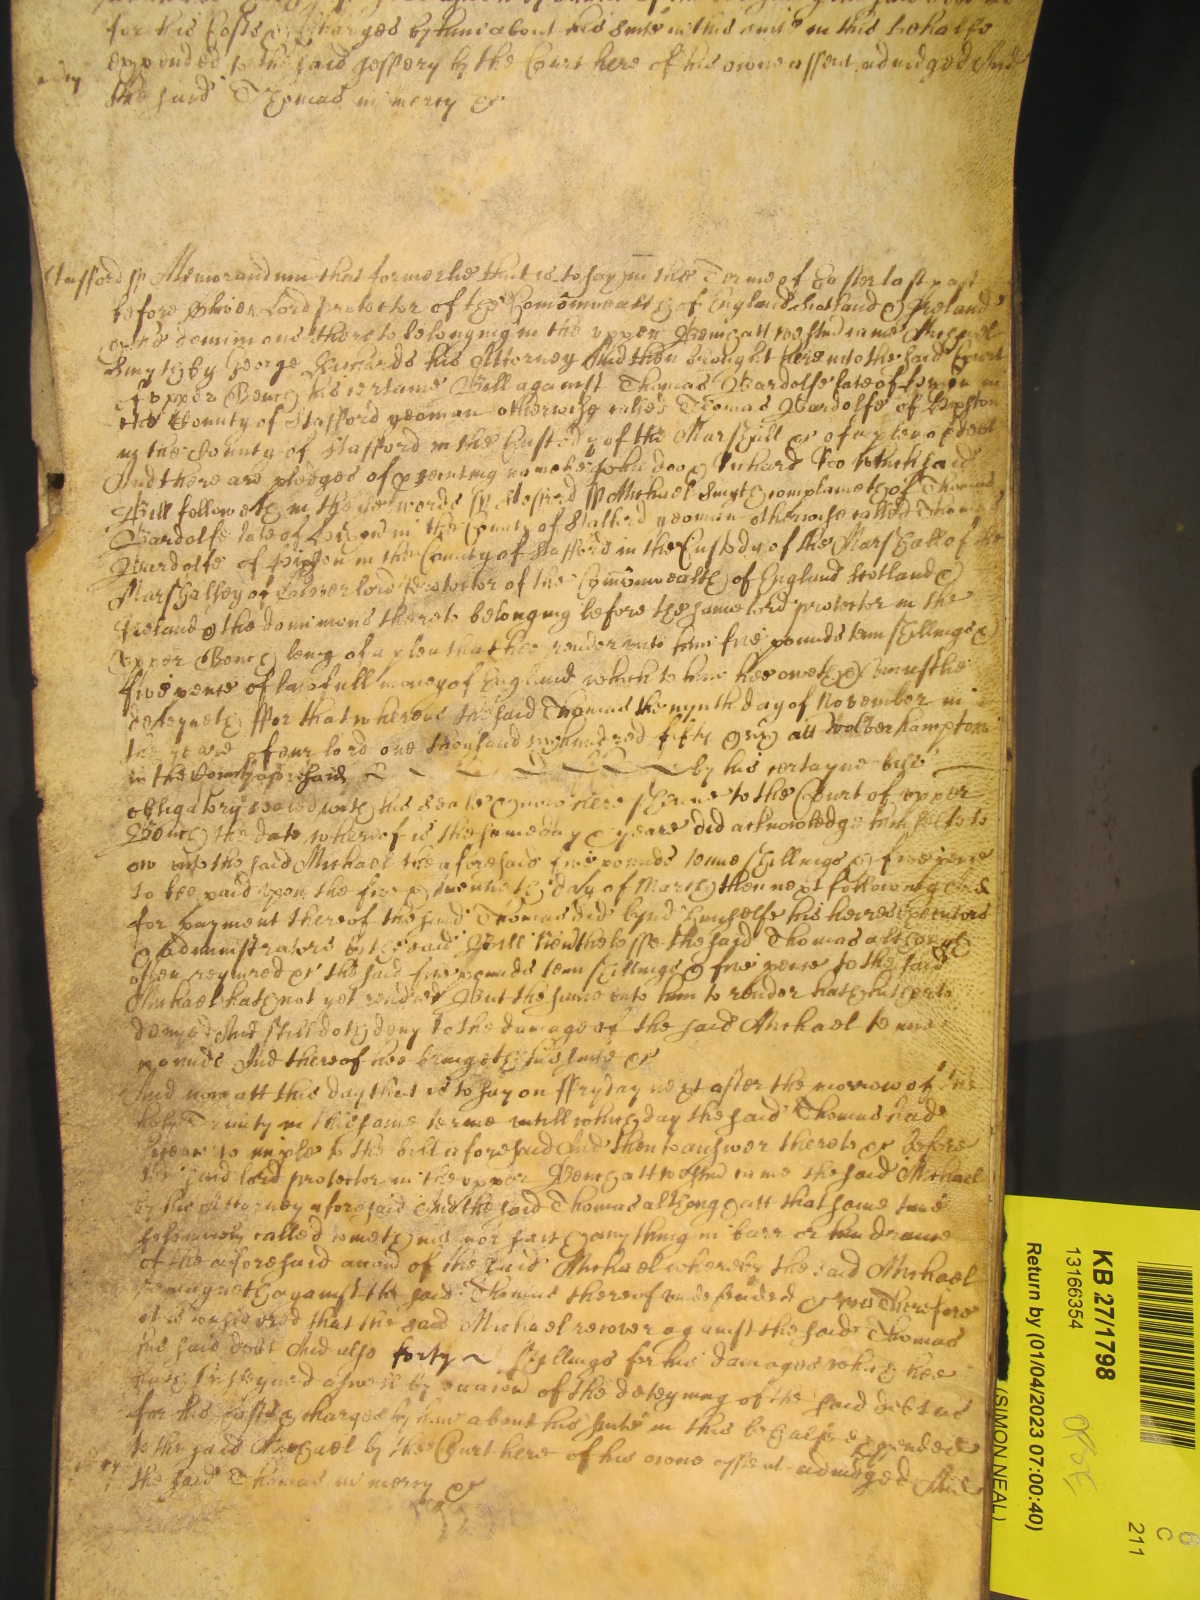 for his Costs & Charges by him about his Suite in this behalfe
expended to the said Jeffery by the Court here of his owne assent adiudged And
the said Thomas in mercy &c
Stafford ss Memorandum that formerlie that is to say in the Terme of Easter last past
before Oliver Lord protector of the Comonwealth of England Scotland & Ireland
and dominions thereto belonging in the upper Bench att Westm came Michael
Smyth by George Richards his Attorney And then brought here unto the said Court
of upper Bench his certaine Bill against Thomas Bardolfe late of in
the County of Stafford yeoman otherwise called Thomas Bardolfe of
in the County of Stafford in the Custody of the Marshall &c of a plea of debt
And there are pledges of prosecuting namelie John Doo & Richard Roo which said
Bill followeth in these words ss Stafford ss Michael Smyth complaineth of Thomas
Bardolfe late of in the County of Stafford yeoman otherwise called Thomas
Bardolfe of in the County of Stafford in the Custody of the Marshall of the
Marshalsey of Oliver lord Protector of the Comonwealth of England Scotland &
Ireland & the dominions thereto belonging before the same lord protector in the
upper Bench being of a plea that hee render unto him five pounds tenn shillings &
five pence of lawfull money of England which to him hee oweth & uniustlie
deteyneth ffor that whereas the said Thomas the nynth day of November in
the yeare of our lord one thousand six hundred fifty & six att Wolverhampton
in the County aforesaid by his certayne bill
obligatory sealed with his seale & now here shewne to the Court of upper
Bench the date whereof is the same day & yeare did acknowledge himselfe to
ow unto the said Michael the aforesaid five pounds tenne shillings & five pence
to bee paid upon the five & twentieth day of March then next following And
for payment thereof the said Thomas did bynd himselfe his heires executors
& administrators by the said Bill Neverthelesse the said Thomas although
often required &c the said five pounds tenn shillings & five pence to the said
Michael hath not yet rendred But the same unto him to render hath hitherto
denyed And still doth deny To the damage of the said Michael tenne
pounds And thereof hee bringeth his suite &c
And now att this day that is to say on ffryday next after the morrow of the
holy Trinity in this same terme untill which day the said Thomas had
leave to imple to the bill aforesaid And then to answer thereto &c Before
the said lord protector in the upper Bench att Westm came the said Michael
by his Attorney aforesaid And the said Thomas although att that same time
solemnly called cometh not nor saith anything in barr or hinderance
of the aforesaid accon of the said Michael whereby the said Michael
remayneth against the said Thomas thereof undefended &c Therefore
it is considered that the said Michael recover against the said Thomas
his said debt And also forty shillings for his damages which hee
hath susteyned aswell by occasion of the deteyning of the said debt as
for his Costs & charges by him about his suite in this behalfe expended
to the said Michael by the Court here of his owne assent adiudged And
the said Thomas in mercy &c
KB 27/1798
13166354
Return by (01/04/2023 07:00:40)
(SIMON NEAL)
6
C
211